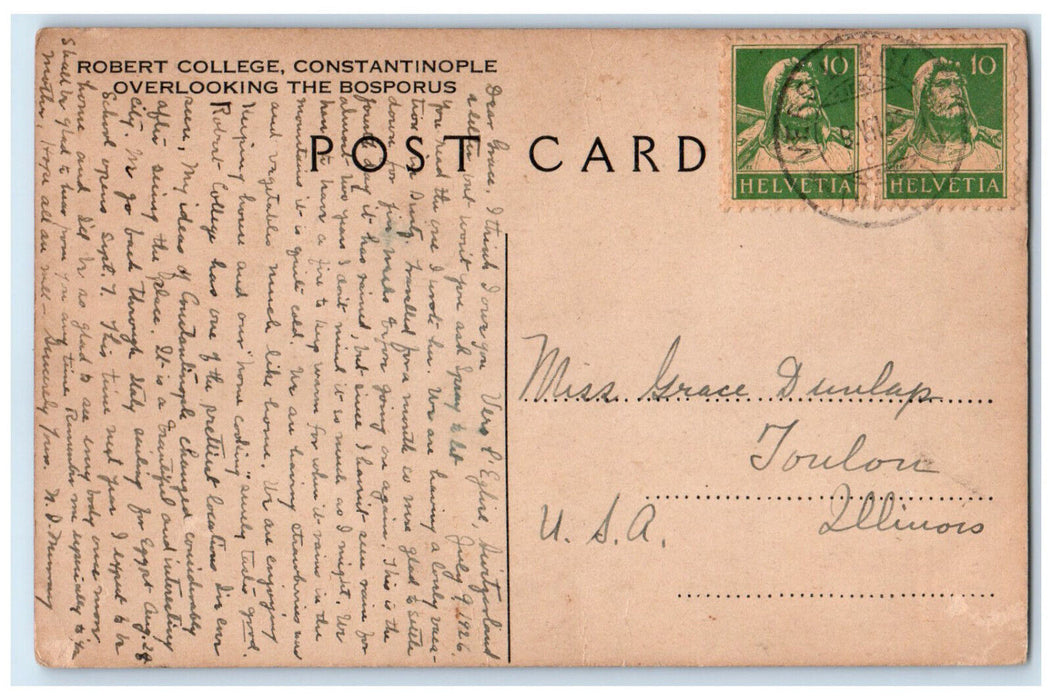 ROBERT COLLEGE, CONSTANTINOPLE
OVERLOOKING THE BOSPORUS
POST CARD
10
HELVETIA
10
HELVETIA
Miss Grace Dunlap
Toulon
U. S. A. Illinois
Vers L'Eglise, Switzerland
July 9, 1926.
Dear Grace, I think I owe you
a letter but won't you ask to let
you read the one I wrote her. We are having a lovely vaca-
tion. We travelled for a month so was glad to settle
down for five weeks before going on again. This is the
day it has rained, but since I haven't seen rain for
almost two years I don't mind it as much as I might. We
have to have a fire to keep warm for when it rains in the
mountains it is quite cold. We are having strawberries and
and vegetables much like home. We are enjoying
keeping house and our "home cooking" surely tastes good.
Robert College has one of the prettiest locations I've ever
seen. My ideas of Constantinople changed considerably
after seeing the place. It is a beautiful and interesting
city. We go back through Italy sailing for Egypt Aug. 28
School opens Sept. 7. This time next year I expect to be
home and I'll be so glad to see everybody once more.
Shall be glad to hear from you any time. Remember me especially to your
Mother, hope all are well - Sincerely yours. N. D. Murray